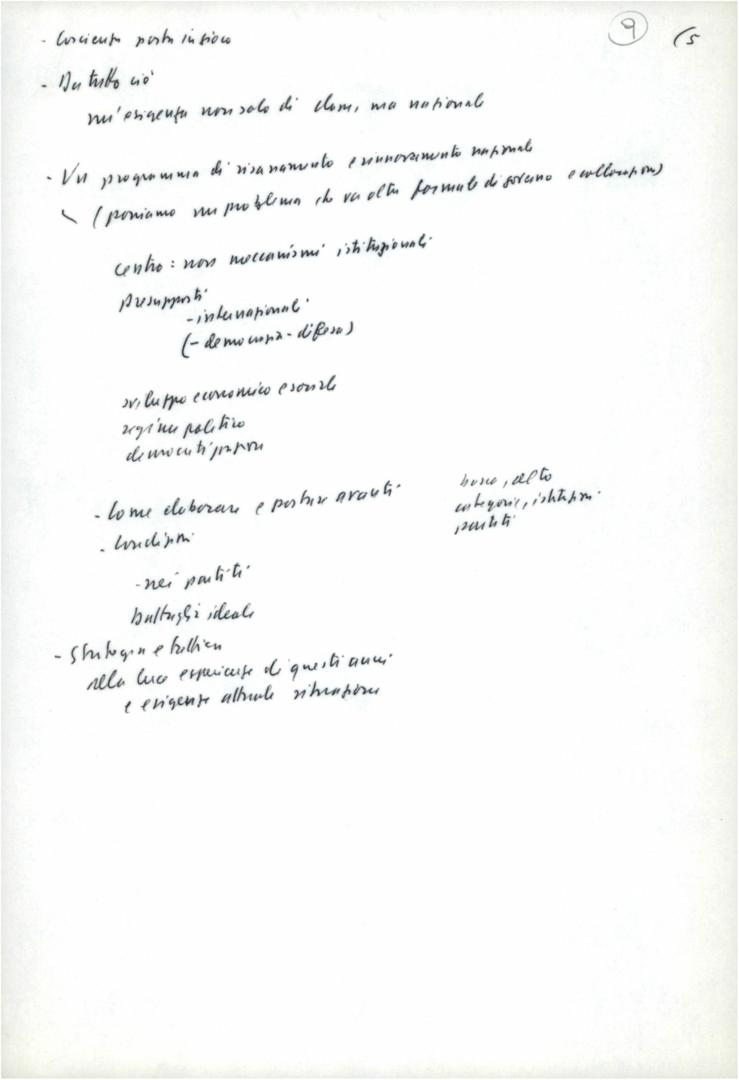 9
(5
- Coscienza posta in gioco
- Da tutto ciò
un'esigenza non solo di classe, ma nazionale
- Un programma di risanamento e rinnovamento nazionale
(poniamo un problema che va oltre formule di governo e collocazioni)
centro: non meccanismi istituzionali
presupposti
- internazionali
(- democrazia - difesa)
sviluppo economico e sociale
regime politico
democratizzazione
- Come elaborare e portare avanti
basso, alto
categorie, istituzioni
partiti
- Condizioni
- nei partiti
battaglia ideale
- Strategia e tattica
alla luce esperienze di questi anni
e esigenze attuale situazione